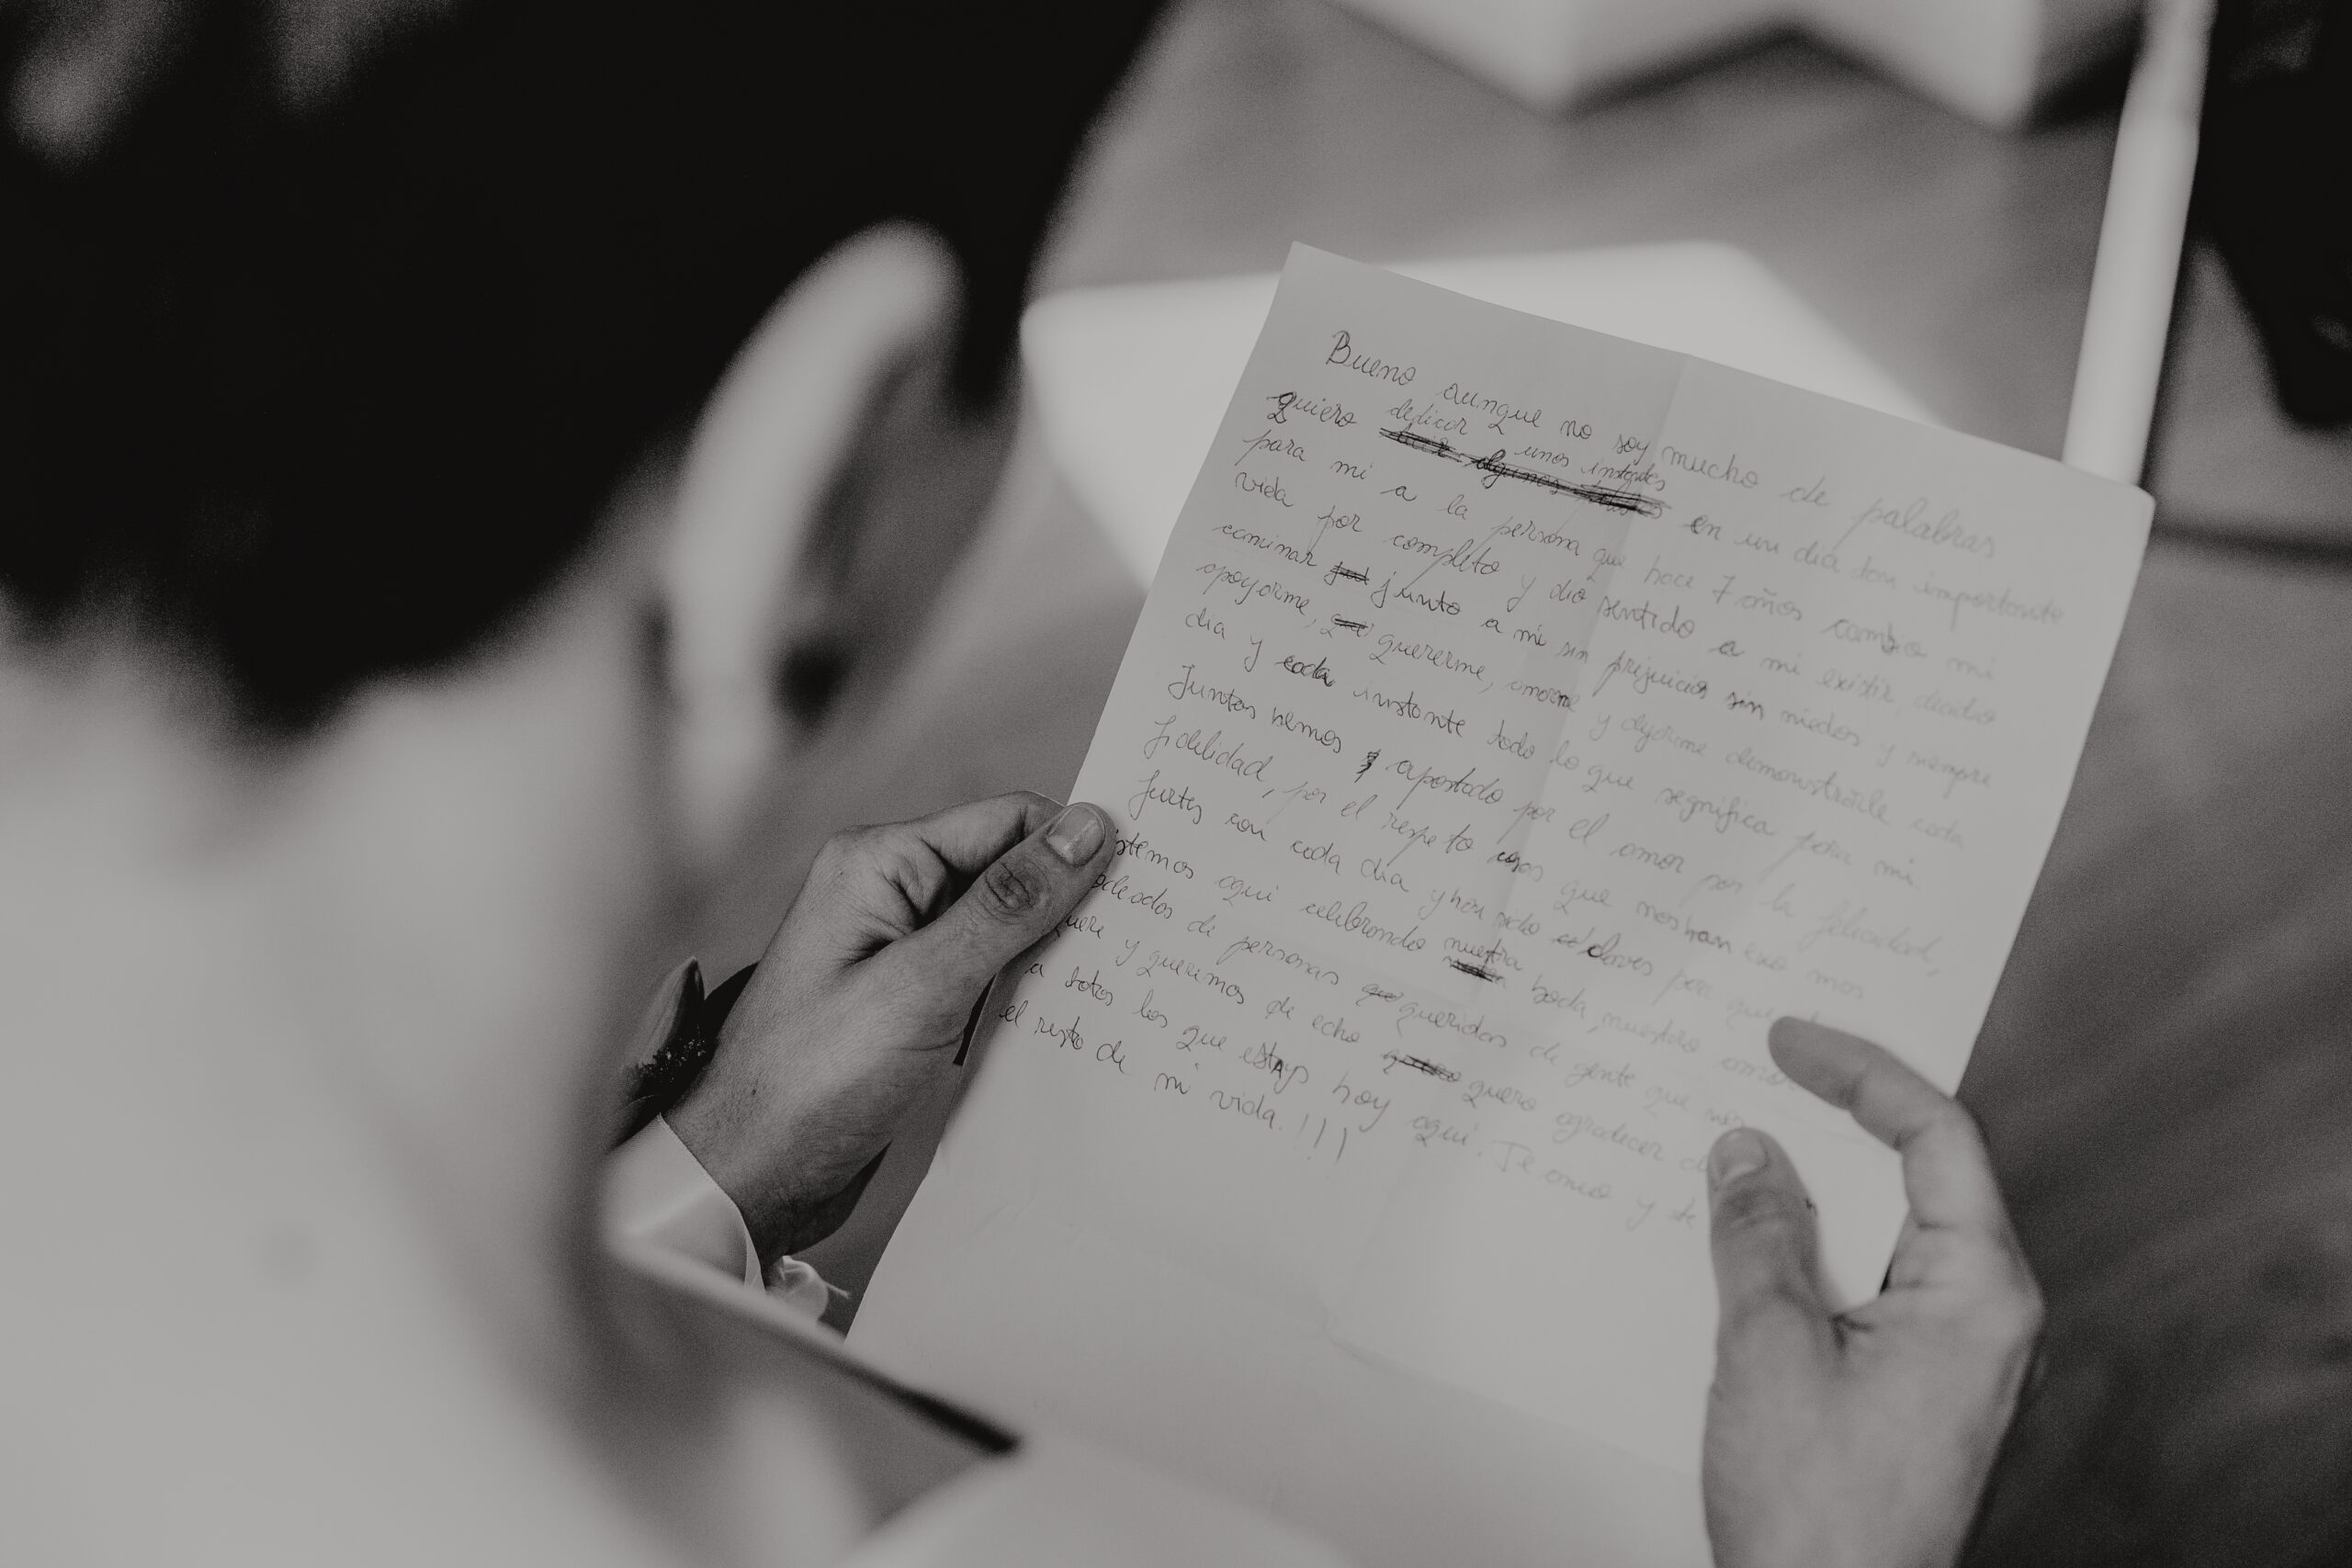 Bueno aunque no soy mucho de palabras
quiero dedicar unos instantes en un dia tan importante
para mi a la persona que hace 7 años cambio mi
vida por completo y dio sentido a mi existir, decidio
caminar junto a mi sin prejuicios sin miedos y siempre
apoyarme, quererme, amarme y dejarme demonstrarle cada
dia y cada instante todo lo que significa para mi
Juntos hemos apostado por el amor por la felicidad,
fidelidad, por el respeto cosas que nos han exo mas
fuertes con cada dia y han sido claves para que
stemos aqui celebrando nuestra boda, nuestro amor
odeados de personas queridas de gente que nos
quere y queremos de echo quero agradecer
a totos los que estays hoy aqui. Te amo y te
el resto de mi vida.!!!